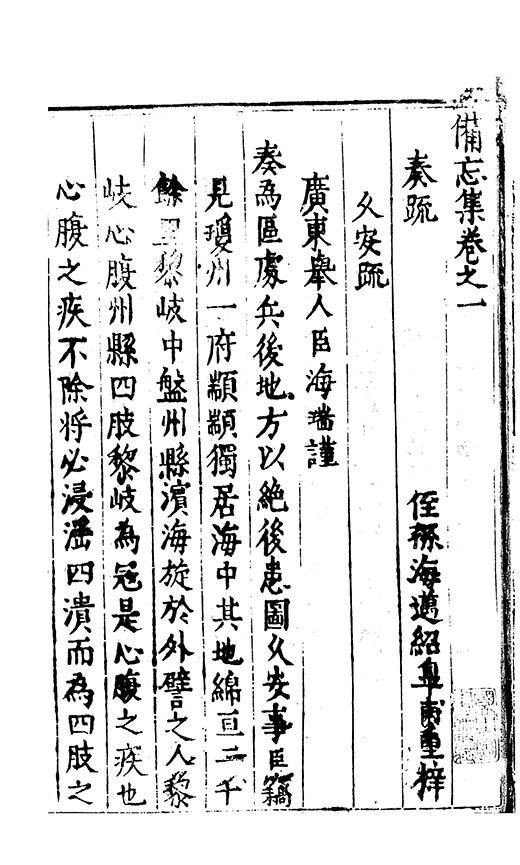 備忘集卷之一
奏疏 侄孫海邁紹皐甫重梓
久安疏
廣東舉人臣海瑞謹
奏為區處兵後地方以絶後患圖久安事臣竊
見瓊州一府顓顓獨居海中其地綿亘二千
餘里黎岐中盤州縣濱海旋於外譬之人黎
岐心腹州縣四肢黎岐為寇是心腹之疾也
心腹之疾不除将必浸滛四潰而為四肢之